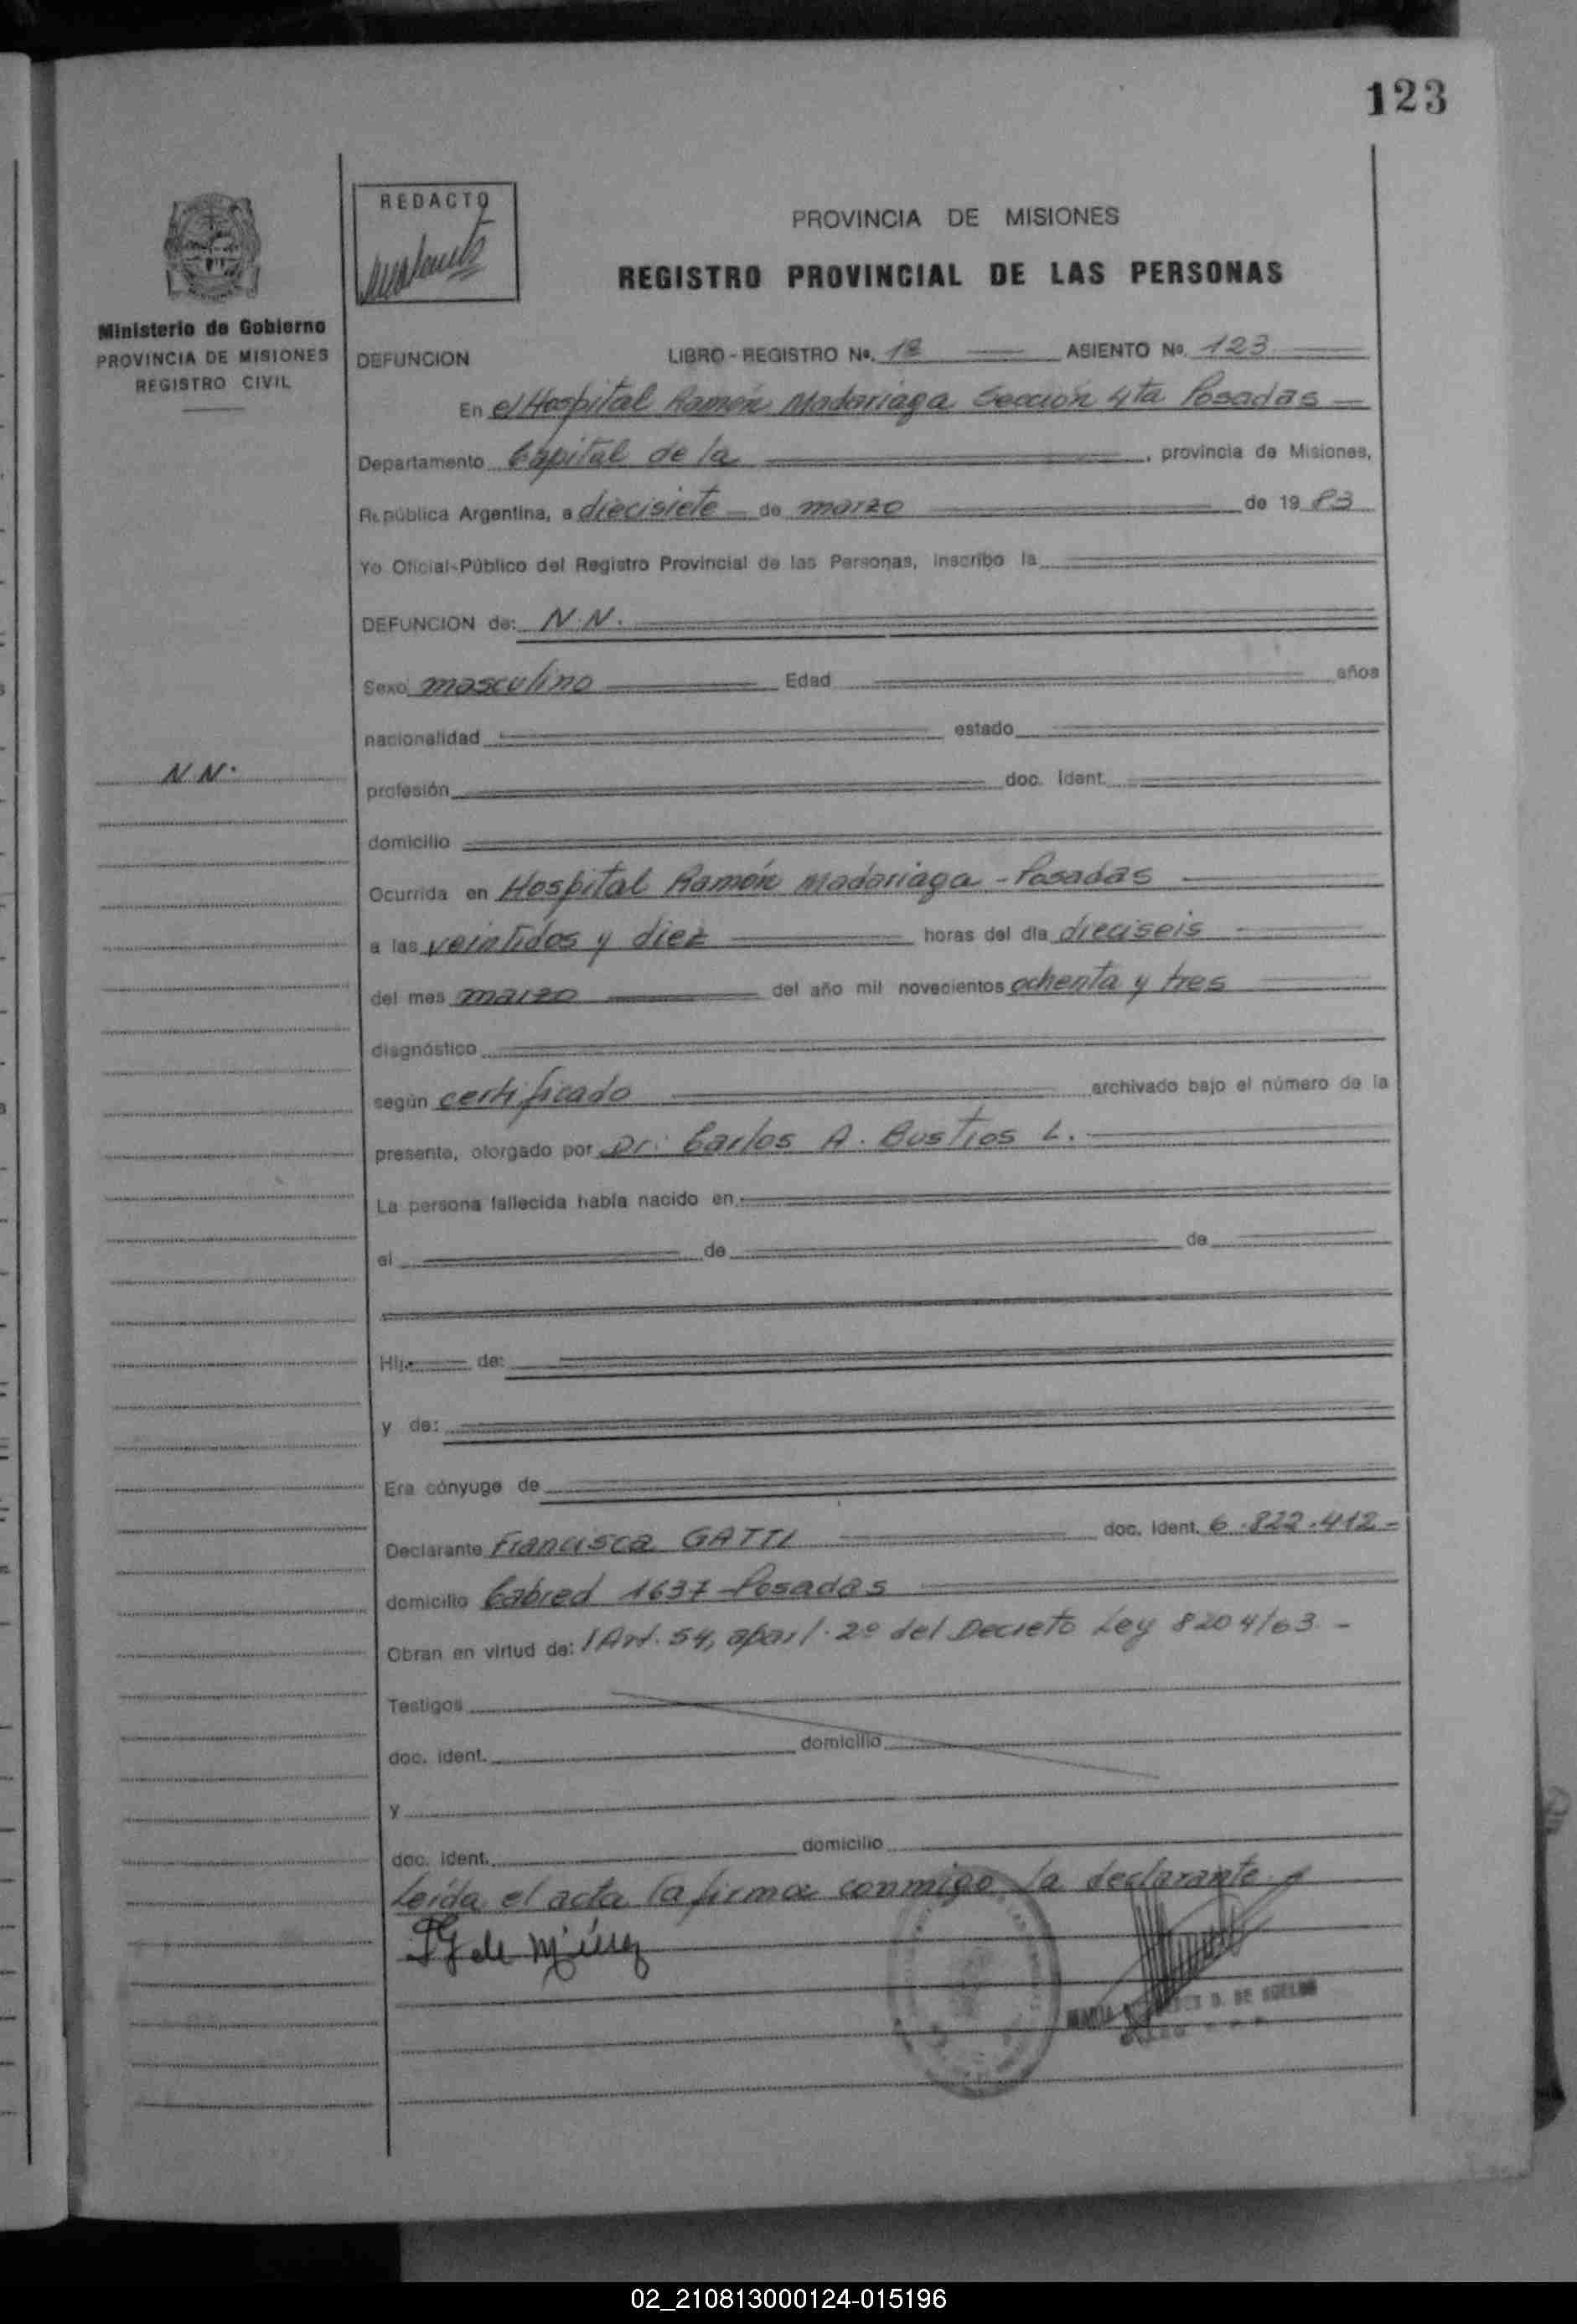 123
REDACTO
PROVINCIA DE MISIONES
REGISTRO PROVINCIAL DE LAS PERSONAS
Ministerio de Gobierno
PROVINCIA DE MISIONES
REGISTRO CIVIL
DEFUNCION LIBRO-REGISTRO No. 18 ASIENTO No. 123
En el Hospital Ramón Madariaga Sección 4ta Posadas
Departamento Capital de la , provincia de Misiones,
República Argentina, a diecisiete de marzo de 1983
Yo Oficial-Público del Registro Provincial de las Personas, inscribo la
DEFUNCION de: N.N.
Sexo masculino Edad años
nacionalidad estado
N.N.
profesión doc. ident.
domicilio
Ocurrida en Hospital Ramón Madariaga - Posadas
a las veintidos y diez horas del día dieciseis
del mes marzo del año mil novecientos ochenta y tres
diagnóstico
según certificado archivado bajo el número de la
presente, otorgado por Dr. Carlos A. Bustios L.
La persona fallecida había nacido en
el de de
Hij de:
y de:
Era cónyuge de
Declarante Francisca GATTI doc. ident. 6.822.412-
domicilio Cabred 1637 - Posadas
Obran en virtud de: / Art. 54, apart. 2º del Decreto Ley 8204/63 -
Testigos
doc. ident. domicilio
y
doc. ident. domicilio
Leída el acta la firma conmigo la declarante
02_210813000124-015196